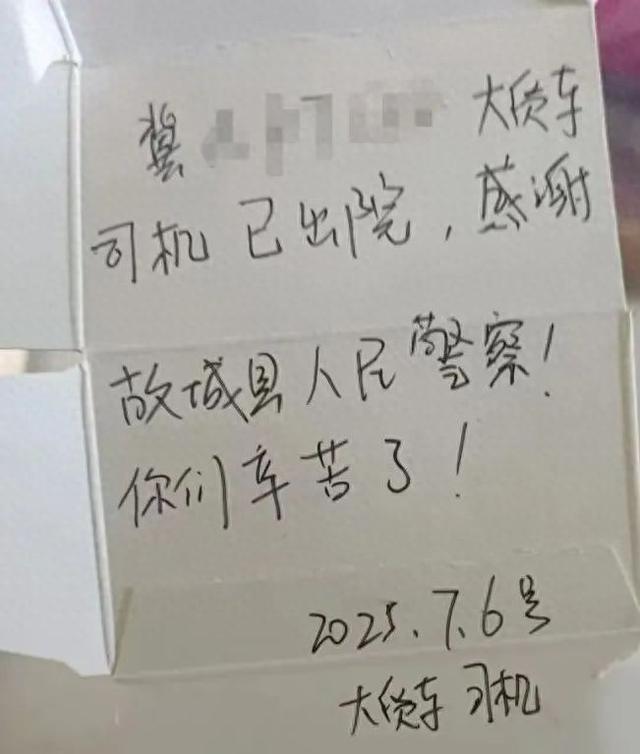 冀 大货车
司机 已出院，感谢
故城县人民警察！
你们辛苦了！
2025.7.6号
大货车 司机